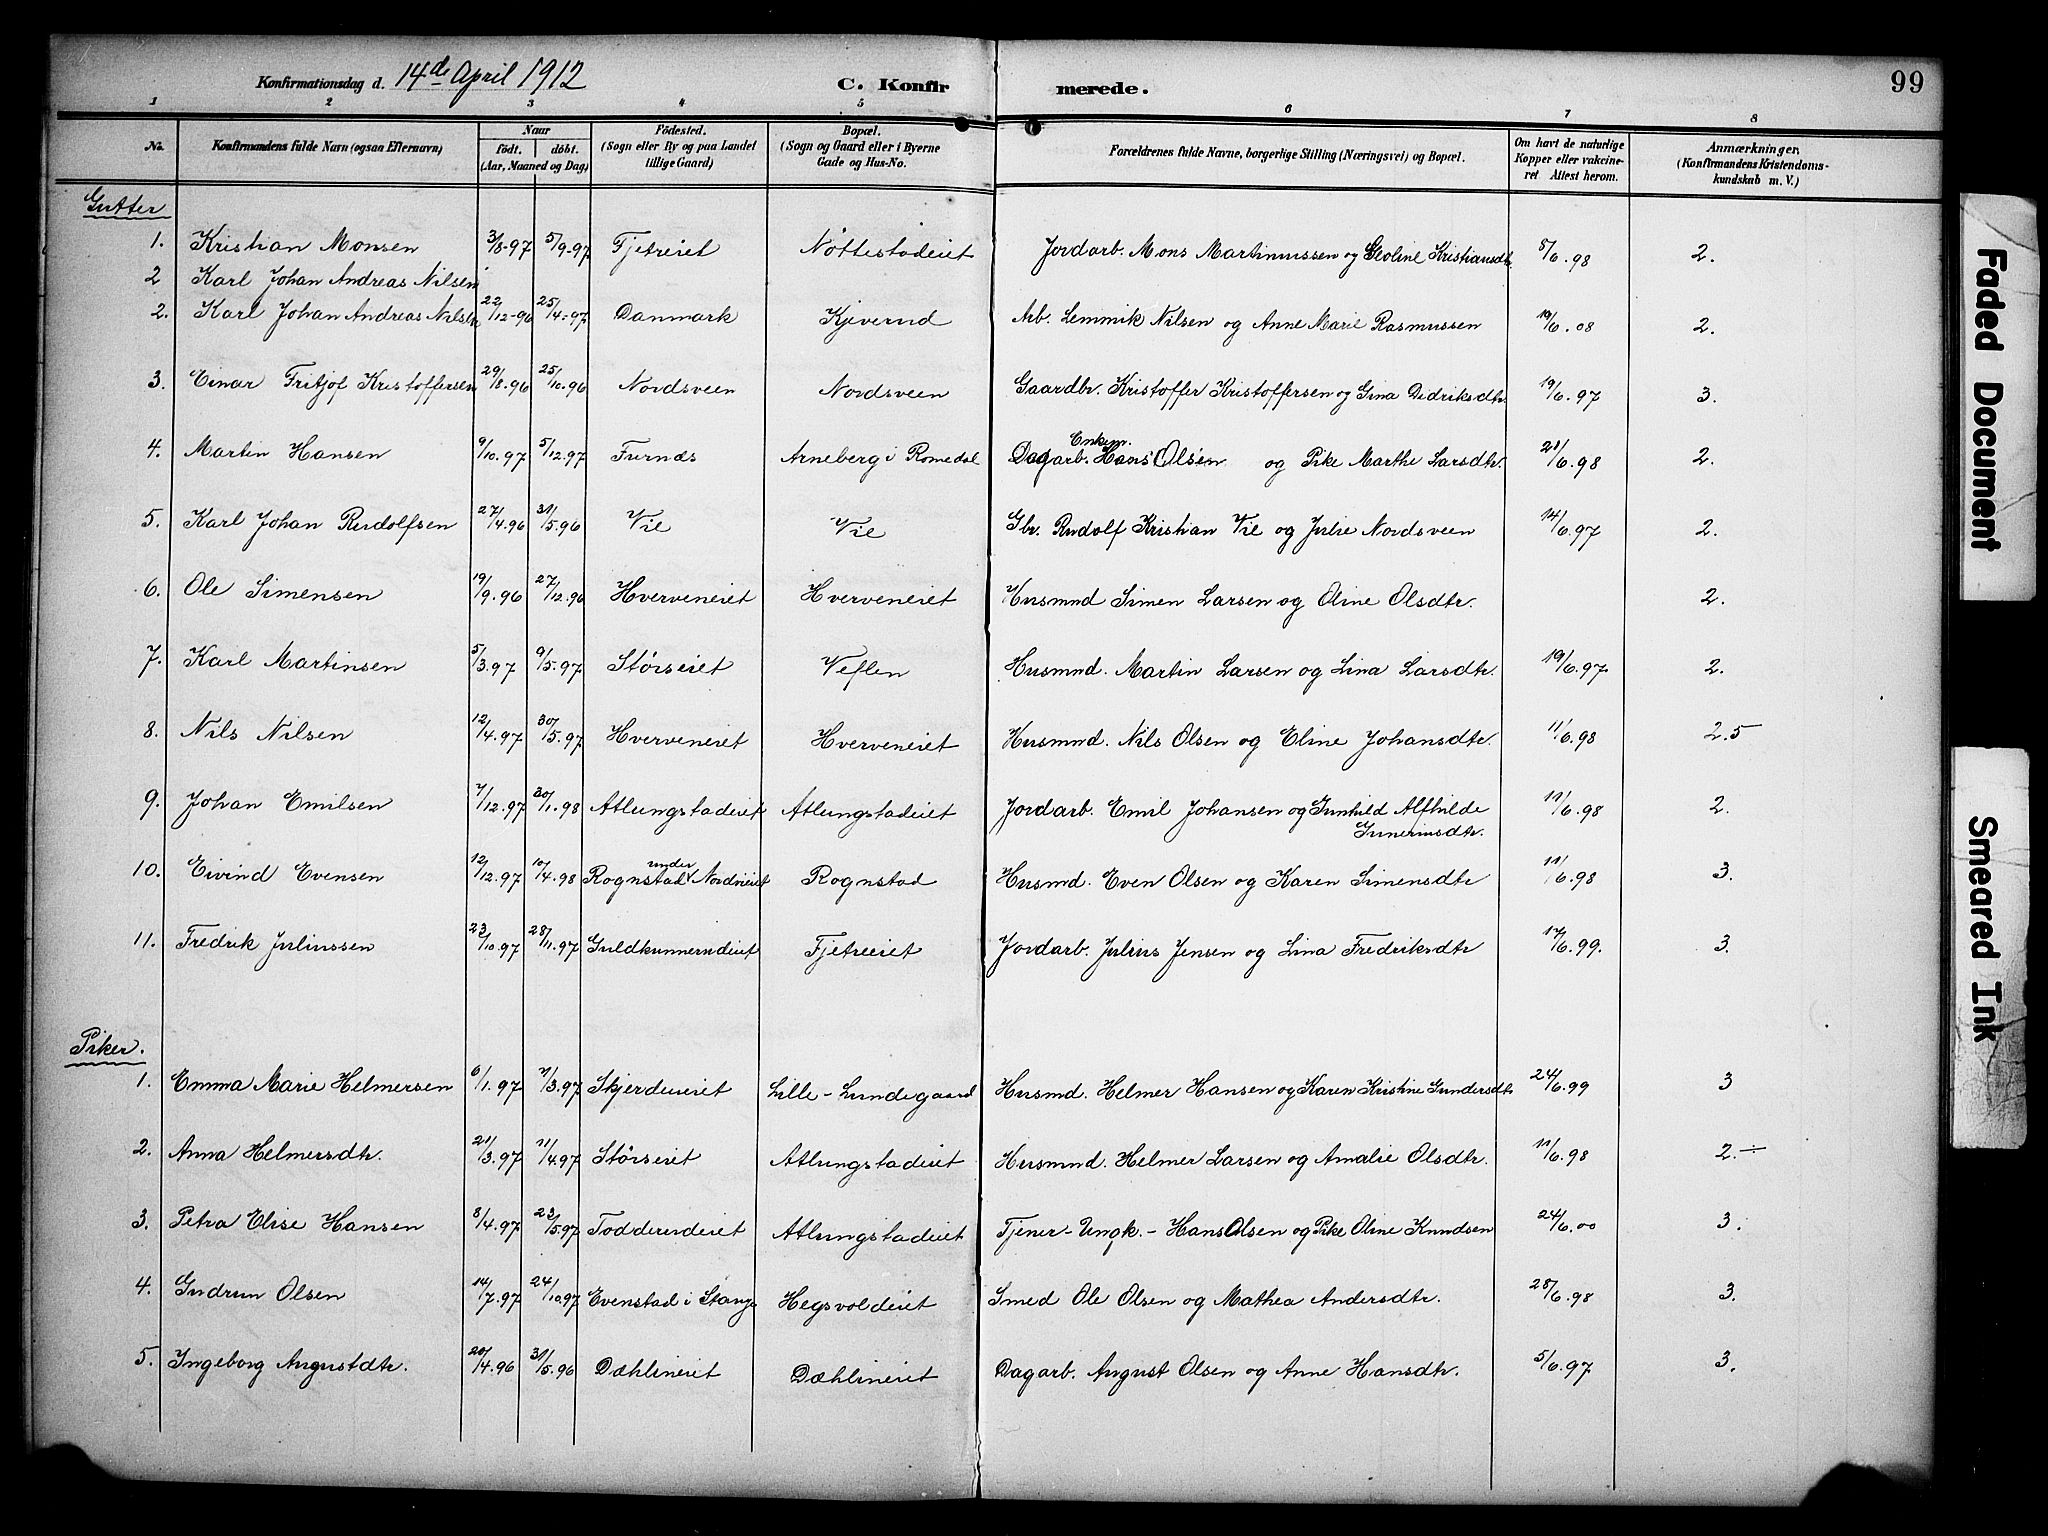 Konfirmationsdag d. 14de April 1912 C. Konfirmerede. 99
1 2 3 4 5 6 7 8
No. Konfirmandens fulde Navn (ogsaa Efternavn) Naar født. døbt. (Aar, Maaned og Dag) Fødested. (Sogn eller By og paa Landet tillige Gaard) Bopæl. (Sogn og Gaard eller i Byerne Gade og Hus-No. Forældrenes fulde Navne, borgerlige Stilling (Næringsvei) og Bopæl. Om havt de naturlige Kopper eller vakcineret Attest herom. Anmærkninger, (Konfirmandens Kristendomskundskab m. V.)
Gutter
1. Kristian Monsen 3/8-97 5/9-97 Fjetreiet Nøttestadeiet Jordarb. Mons Martinussen og Geoline Kristiansdtr. 8/6.98 2.
2 Karl Johan Andreas Nilsen
2. Karl Johan Andreas Nilsen 22/12-96 25/4-97 Danmark Kjeverud Arb. Lemmik Nilsen og Anne Marie Rasmussen 19/6.08 2.
3. Einar Fritjof Kristoffersen 29/8.96 25/10.96 Nordsveen Nordsveen Gaardbr. Kristoffer Kristoffersen og Gina Didriksdtr. 19/6.97 3.
4. Martin Hansen 9/10.97 5/12.97 Furnæs Arneberg i Romedal Dagarb. Enkem. Hans Olsen og Pike Marthe Larsdtr. 21/6.98 2.
5. Karl Johan Rudolfsen 27/4.96 31/5.96 Vil Vil Gbr. Rudolf Kristian Vil og Julie Nordsveen 14/6.97 2.
6. Ole Simensen 19/9.96 27/12.96 Hverveneiet Hverveneiet Husmnd Simen Larsen og Oline Olsdtr. 2.
7. Karl Martinsen 5/3.97 9/5.97 Størseiet Veflen Husmnd. Martin Larsen og Lina Larsdtr. 19/6.97 2.
8. Nils Nilsen 12/4.97 30/5.97 Hverveneiet Hverveneiet Husmnd. Nils Olsen og Eline Johansdtr. 11/6.98 2.5
9. Johan Emilsen 7/12.97 30/1.98 Atlungstadeiet Atlungstadeiet Jordarb. Emil Johansen og Gunhild Alfhilde
Guneriusdtr. 11/6.98 2.
10. Eivind Evensen 12/12.97 10/4.98 Rognstad under Nordvieiet Rognstad Husmd. Even Olsen og Karen Simensdtr 11/6.98 3.
11. Fredrik Juliussen 23/10.97 28/11.97 Guldkunnerudeiet Fjetreeiet Jordarb. Julius Jensen og Lina Fredriksdtr 17/6.99. 3.
Piker.
1. Emma Marie Helmersen 6/1.97 7/3.97 Skjerdeneiet Lille-Lundegaard Husmd. Helmer Hansen og Karen Kristine Gundersdtr 24/6.99 3
2. Anna Helmersdtr. 21/3.97 11/4.97 Størseiet Atlungstadeiet Husmnd. Helmer Larsen og Amalie Olsdtr. 11/6.98 2.÷
3. Petra Elise Hansen 8/4.97 23/5.97 Todderudeiet Atlungstadeiet Tjener-Ungk.- Hans Olsen og Pike Oline Knudsen 24/6.00 3.
4. Gudrun Olsen 14/7.97 24/10.97 Evenstad i Stange Hegsvoldeiet Smed Ole Olsen og Mathea Andersdtr. 28/6.98 3.
5. Ingeborg Augustdtr. 20/4.96 31/5.96 Dæhlineiet Dæhlineiet Dagarb. August Olsen og Anne Hansdtr. 5/6.97 3.
Faded Document
Smeared Ink